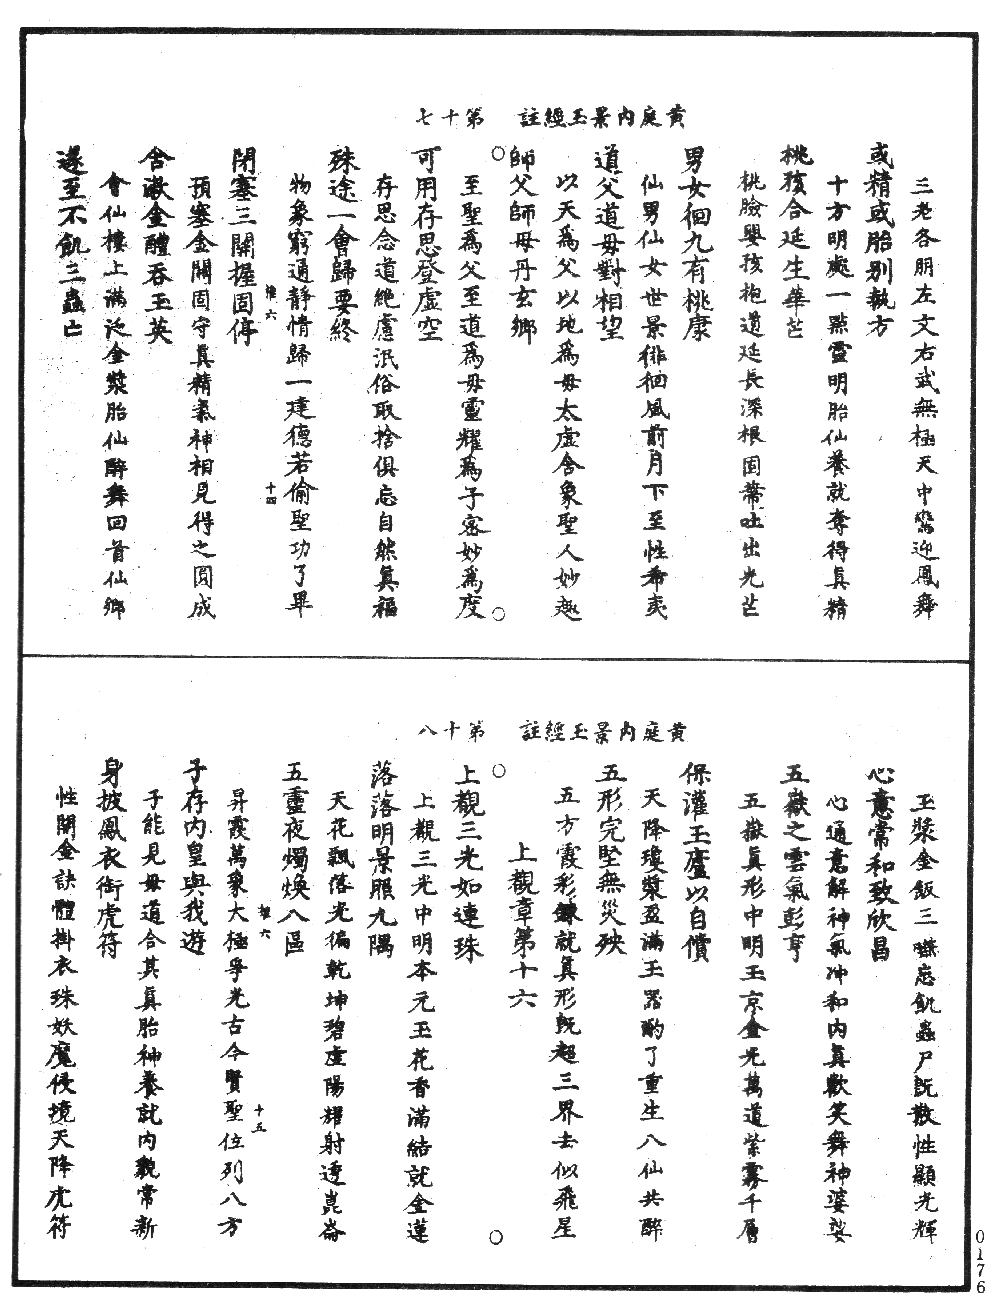 黃庭內景玉經註　第十七
三老各朋左文右武無極天中鸞迎鳳舞
或精或胎別執方
十方明處一點靈明胎仙養就奪得真精
桃孩合延生華芒
桃臉嬰孩抱道延長深根固蔕吐出光芒
男女徊九有桃康
仙男仙女世景徘徊風前月下至性希夷
道父道母對相望
以天為父以地為母太虛含象聖人妙趣
師父師母丹玄鄉
至聖為父至道為母靈耀為子密妙為度
可用存思登虛空
存思念道絶慮泯俗取捨俱忘自然真福
殊途一會歸要終
物象窮通靜情歸一達德若偷聖功了畢
推六　十四
閉塞三關握固停
預塞金關固守真精氣神相見得之圓成
含漱金醴吞玉英
會仙樓上滿泛金漿胎仙醉舞回首仙鄉
遂至不飢三蟲亡
黃庭內景玉經註　第十八
玉漿金飯三 忘飢蟲尸既散性顯光輝
心意常和致欣昌
心通意解神氣冲和內真歡笑舞神婆娑
五嶽之雲氣彭亨
五嶽真形中明玉京金光萬道紫霧千層
保灌玉廬以自償
天降瓊漿盈滿玉器酌了重生八仙共醉
五形完堅無災殃
五方霞彩鍊就真形既超三界去似飛星
上覩章第十六
上觀三光如連珠
上觀三光中明本元玉花香滿結就金蓮
落落明景照九隅
天花飄落光徧乾坤碧虛陽耀射透崑崙
五靈夜燭煥八區
昇霞萬象大極孚光古今賢聖位列八方
推六　十五
子存內皇與我遊
子能見母道合其真胎神養就內觀常新
身披鳳衣銜虎符
性關金訣體掛衣珠妖魔侵境天降虎符
0176